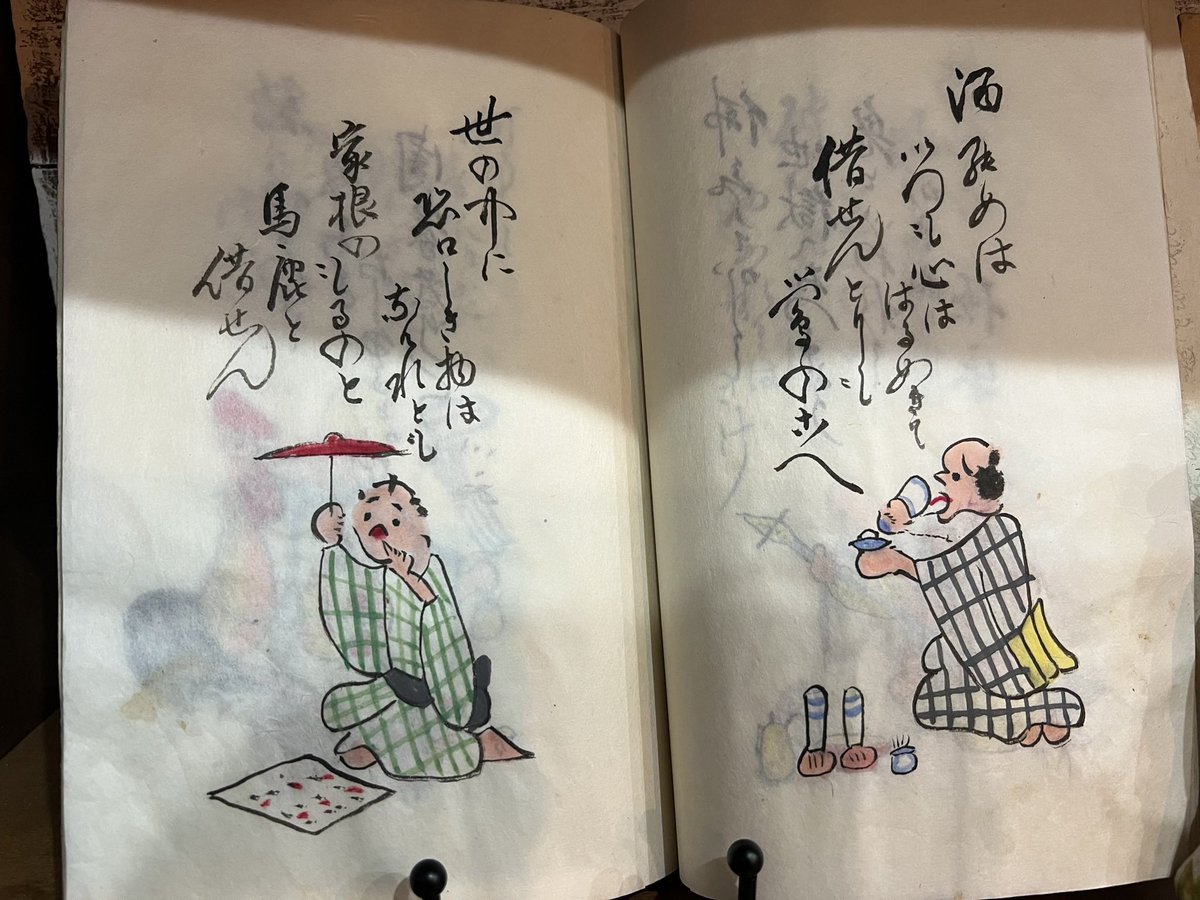 酒飲めは
いつも心は
はるめきて
借せんとりも
鶯のこへ
世の中に
恐ロしき物は
なけれとも
家根のもるのと
馬鹿と
借せん